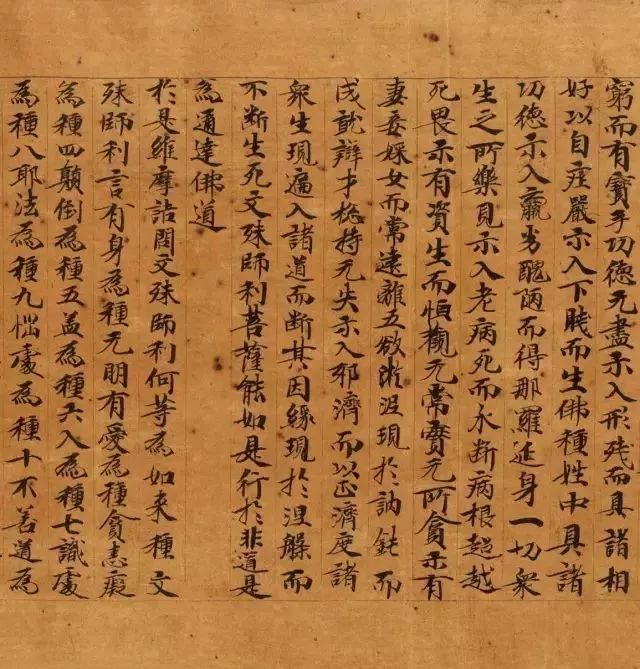 窮而有寶手功徳无盡示入形残而具諸相
好以自莊嚴示入下賎而生佛種姓中具諸
功徳示入羸劣醜陋而得那羅延身一切衆
生之所樂見示入老病死而永断病根超越
死畏示有資生而恒觀无常實无所貪示有
妻妾婇女而常遠離五欲淤泥現於訥鈍而
成就辯才揔持无失示入邪濟而以正濟度諸
衆生現遍入諸道而断其因緣現於涅槃而
不断生死文殊師利菩薩能如是行於非道是
為通達佛道
於是維摩詰問文殊師利何等為如来種文
殊師利言有身為種无明有愛為種貪恚癡
為種四顛倒為種五盖為種六入為種七識處
為種八耶法為種九惱處為種十不善道為